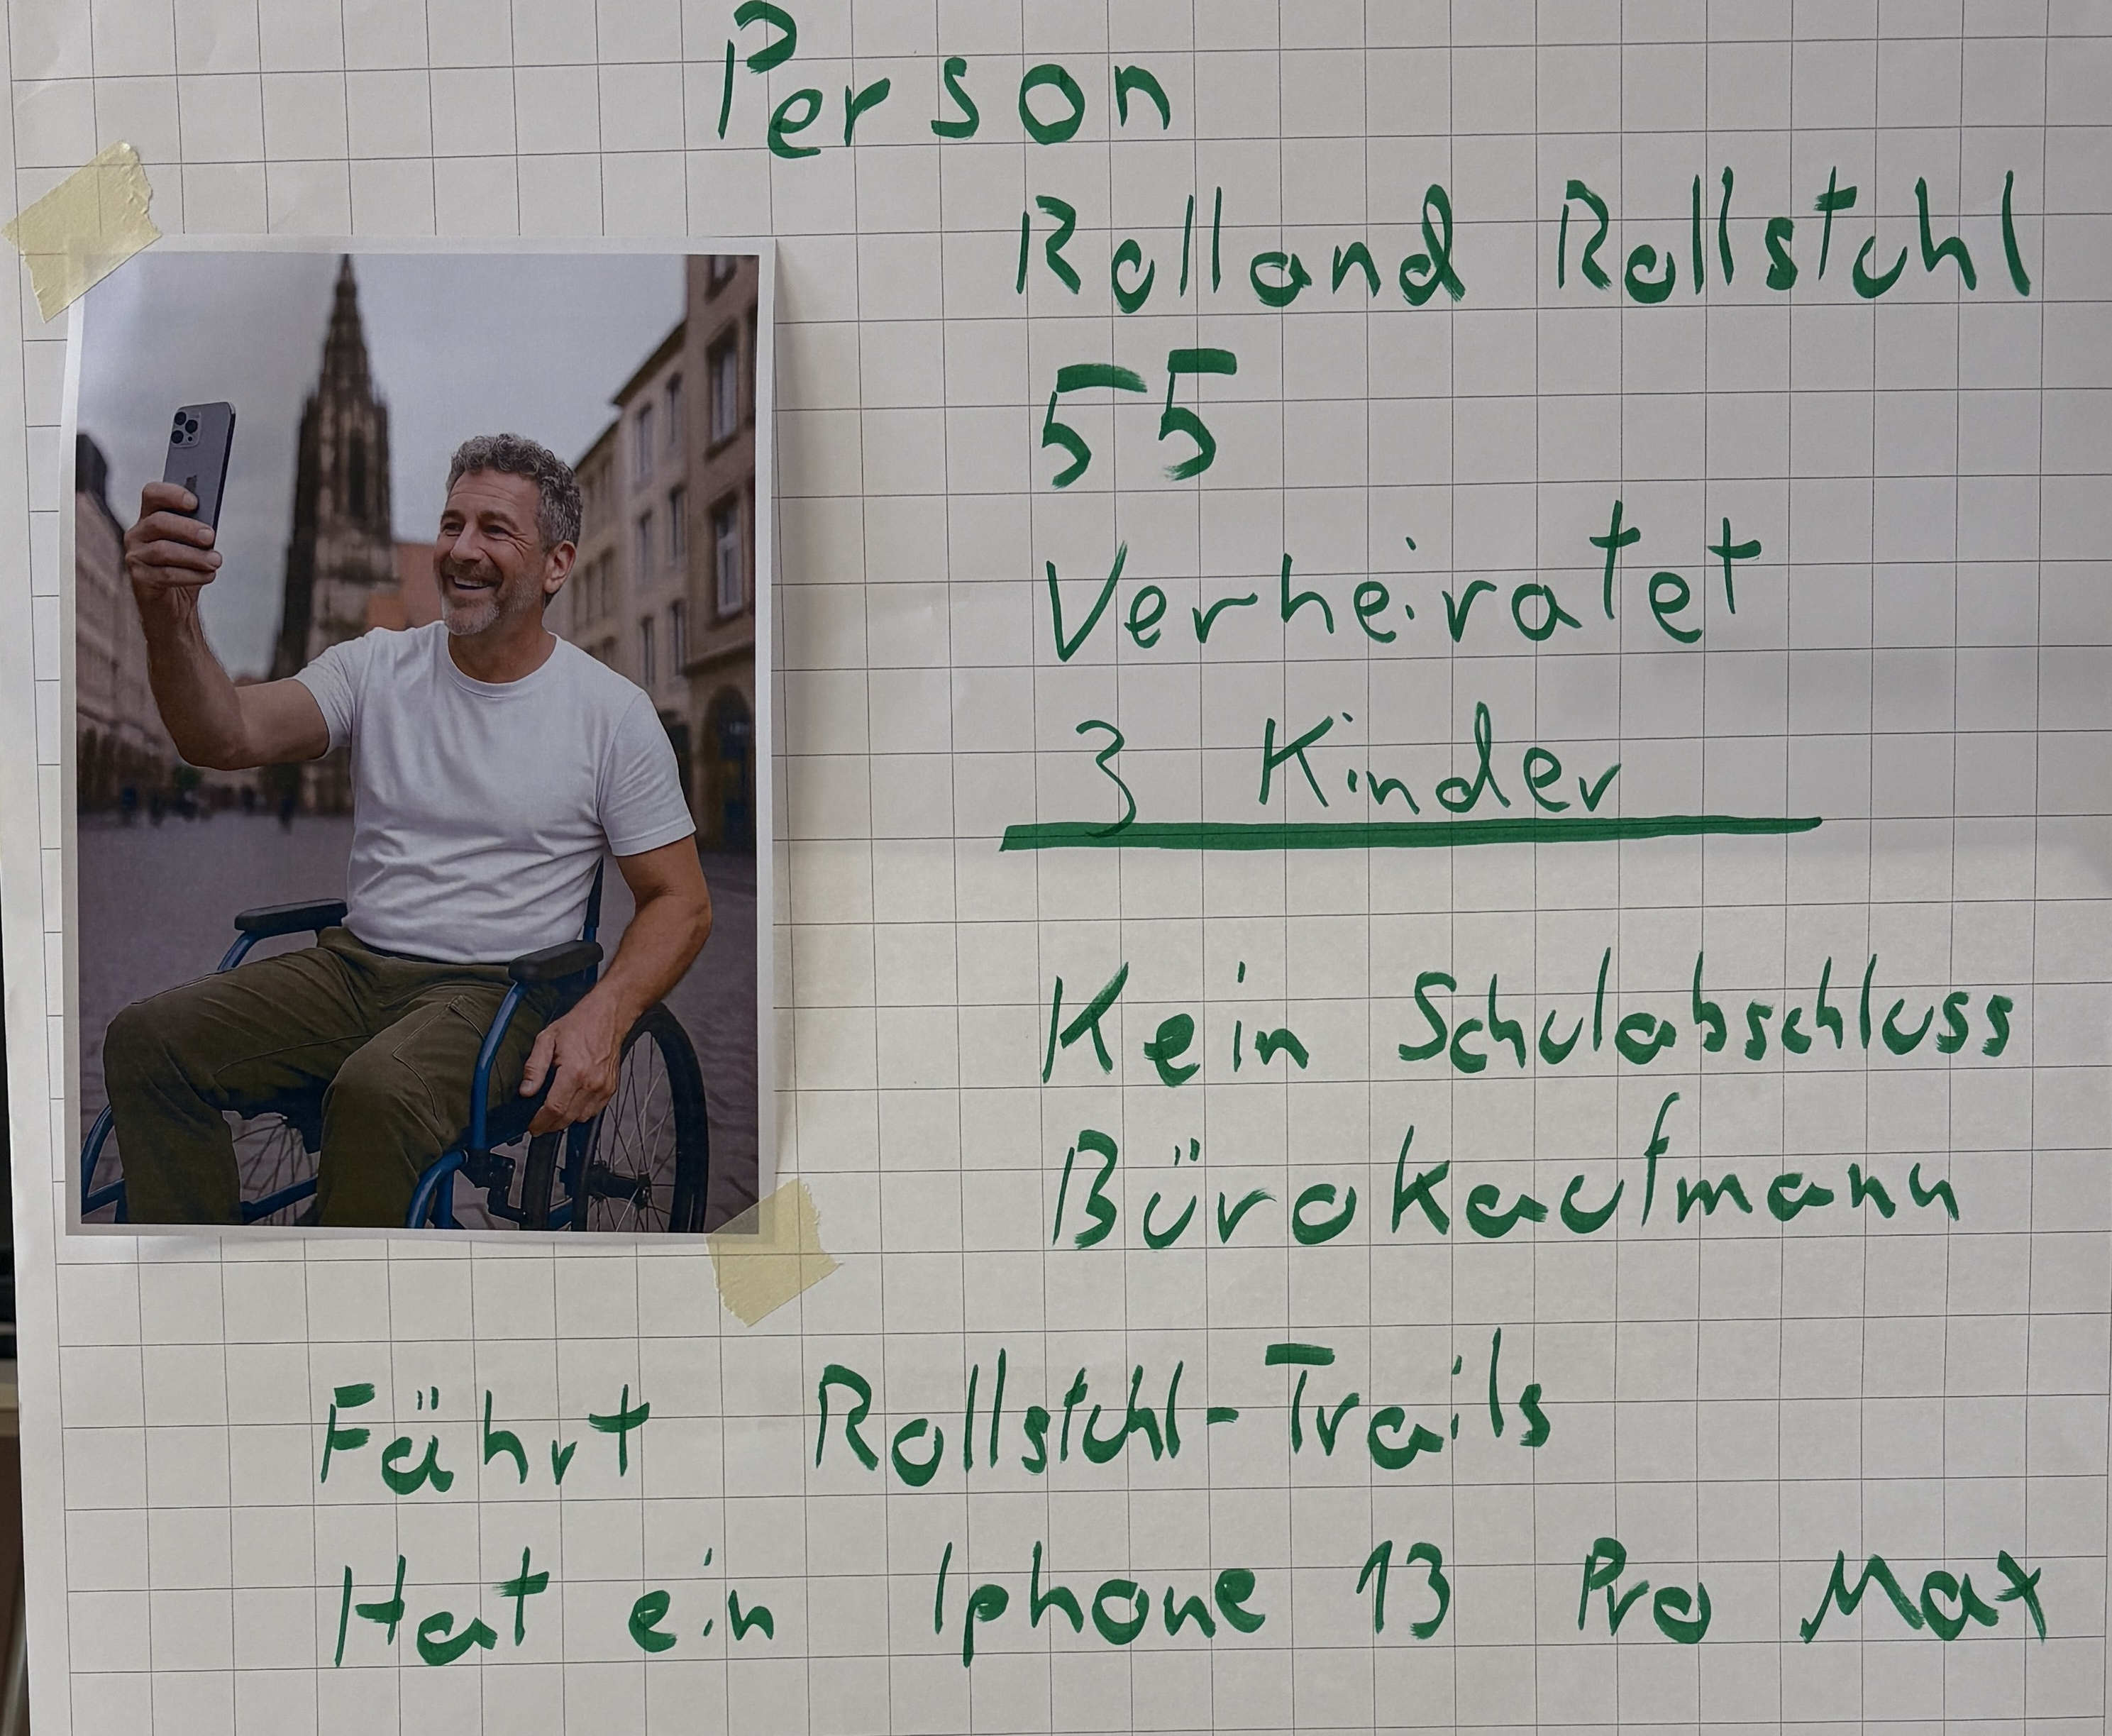 Person
Rolland Rollstuhl
55
Verheiratet
3 Kinder
Kein Schulabschluss
Bürokaufmann
Fährt Rollstuhl-Trails
Hat ein Iphone 13 Pro Max